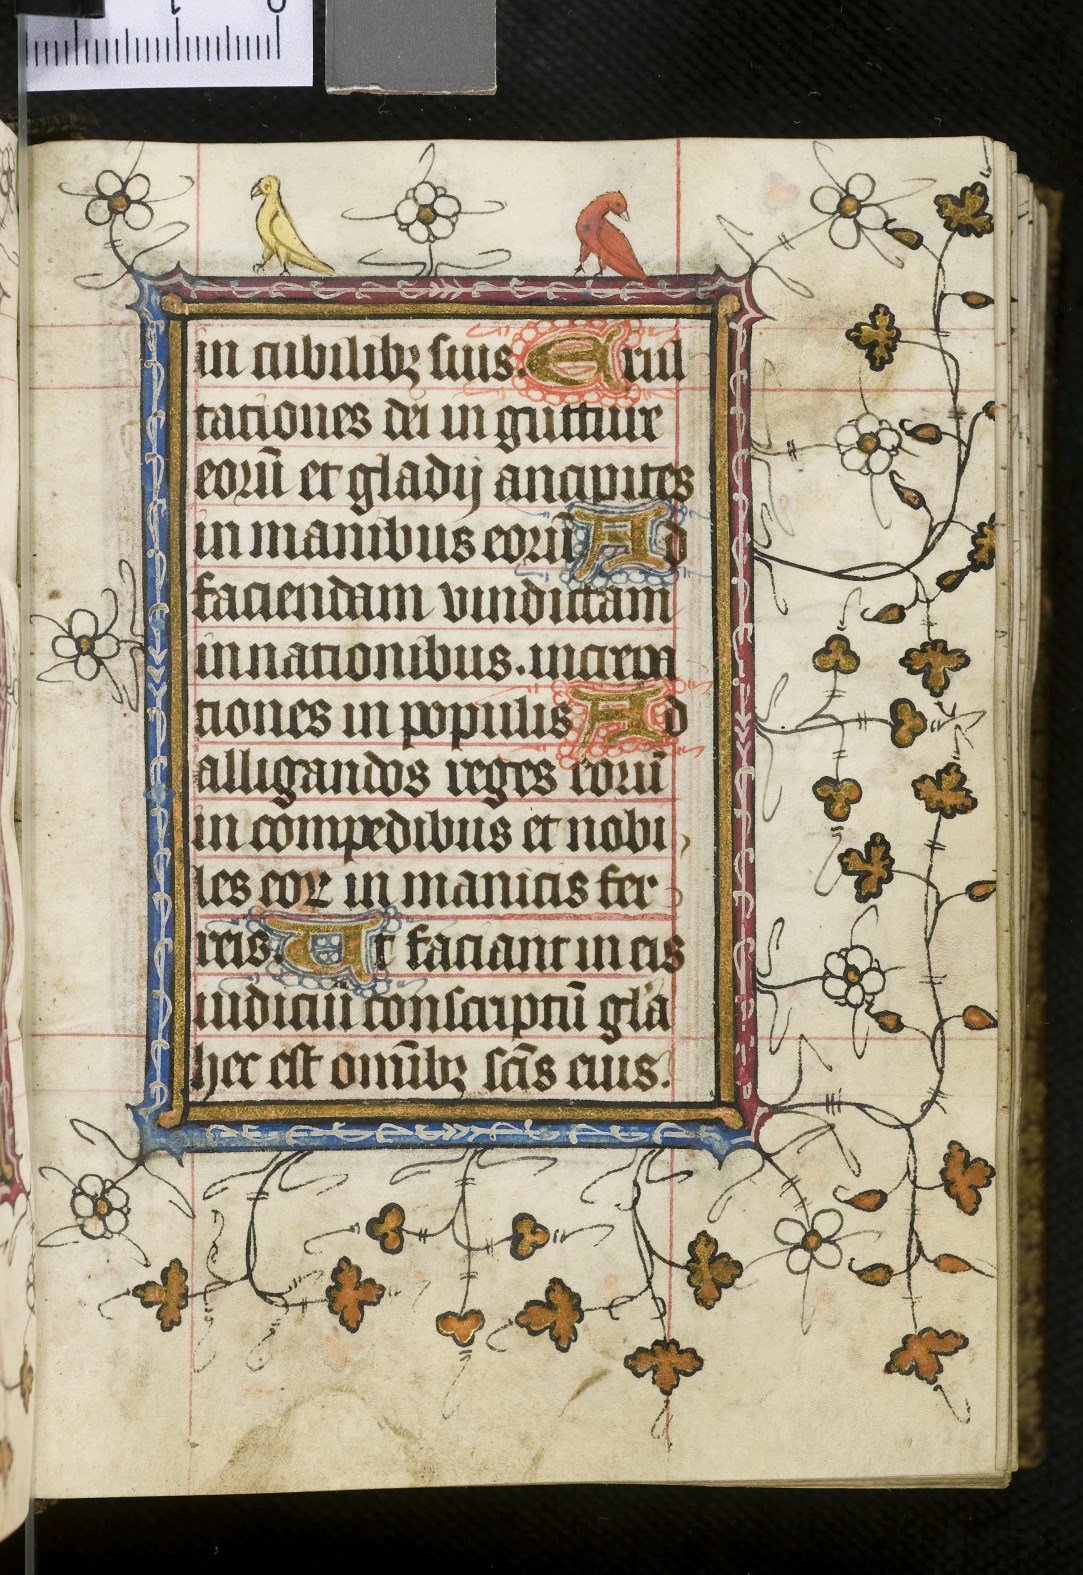 0 1
in cubilibꝫ suis. Exul
tationes dei in gutture
eorū et gladij ancipites
in manibus eorū Ad
faciendam vindictam
in nationibus . increpa
tiones in populis Ad
alligandos reges eorū
in compedibus et nobi
les eoꝝ in manicis fer
reis. Ut faciant in eis
iudiciū conscriptū gl'a
hec est omībꝫ scīs eius.